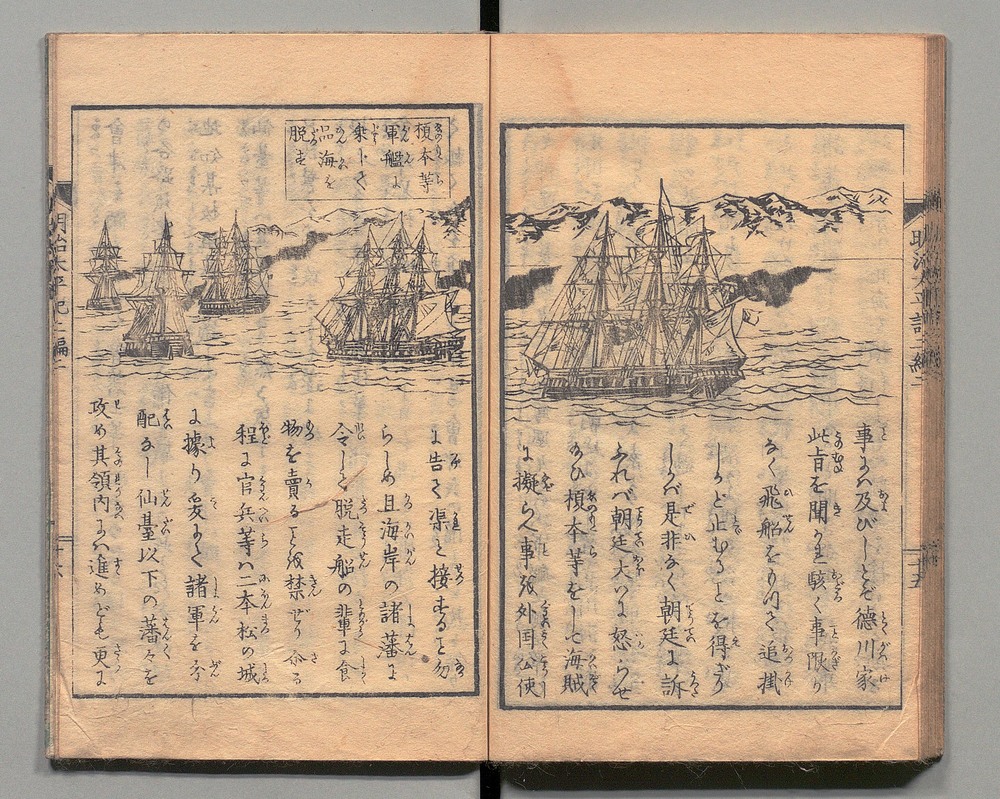 事にハ及びしとぞ徳川家
此旨を聞き駭く事限り
なく飛船をもつて追掛
しかど止むることを得ざり
しかバ是非なく朝廷に訴
ふれバ朝廷大いに怒らせ
給ひ榎本等をして海賊
に擬らへ事を外国公使
榎本等
軍艦に
乗じて
品海を
脱走
に告て渠と接することを勿
らしめ且海岸の諸藩に
令して脱走船の輩に食
物を賣ることを禁ぜり
程に官兵等ハ二本松の城
に據り爰にて諸軍を分
配なし仙臺以下の藩々を
攻め其領内にハ進めども更に
明治太平記二編二
十六
十五